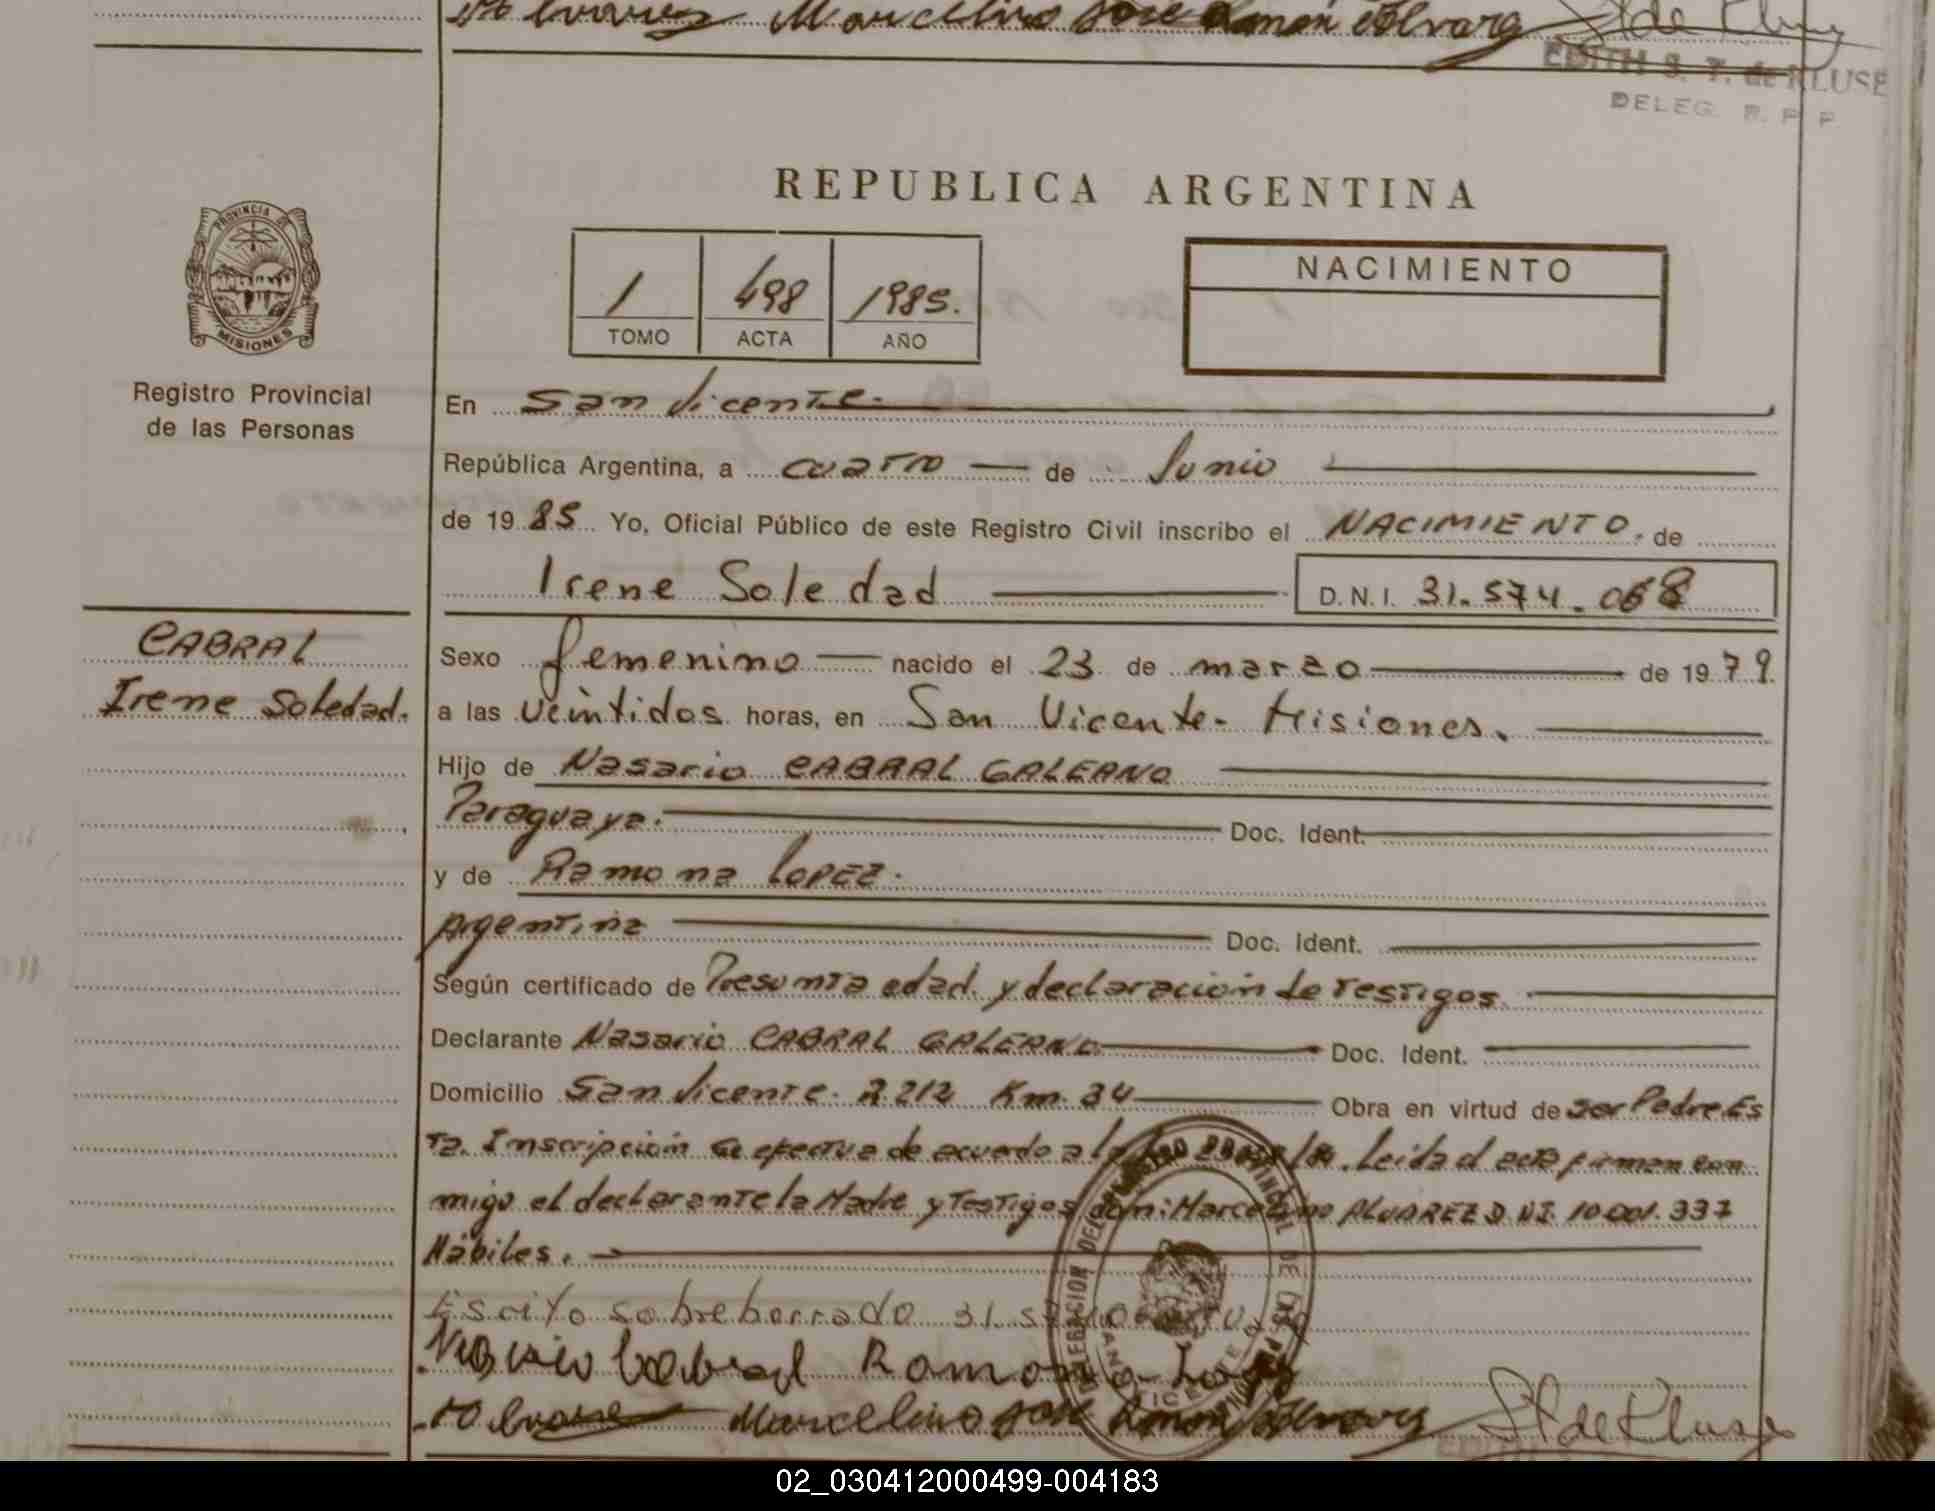 Alvarez Marcelino José Ramón Alvarez St de Kluse
EDITH S. T. de KLUSE
DELEG. R. P. P.
REPUBLICA ARGENTINA
PROVINCIA DE
MISIONES
1 498 1985.
TOMO ACTA AÑO
NACIMIENTO
Registro Provincial
de las Personas
En San Vicente.
República Argentina, a cuatro de Junio
de 1985 Yo, Oficial Público de este Registro Civil inscribo el NACIMIENTO. de
Irene Soledad D.N.I. 31.574.068
CABRAL
Irene Soledad.
Sexo femenino nacido el 23 de marzo de 1979.
a las veintidos horas, en San Vicente- Misiones.
Hijo de Nasario CABRAL GALEANO
Paraguaya. Doc. Ident.
y de Ramona LOPEZ.
Argentina Doc. Ident.
Según certificado de Presunta edad. y declaración de Testigos.
Declarante Nasario CABRAL GALEANO Doc. Ident.
Domicilio San Vicente. R.212 Km. 34 Obra en virtud de ser Padre. Es
ta. Inscripción se efectua de acuerdo a la Leida el acta firman con
migo el declarante la Madre y Testigos don: Marcelino ALVAREZ D.NI. 10.001.337
Hábiles.
Escrito sobreborrado 31.574
Nasario Cabral Ramona Lopez
Alvarez Marcelino José Ramón Alvarez St de Kluse
02_030412000499-004183